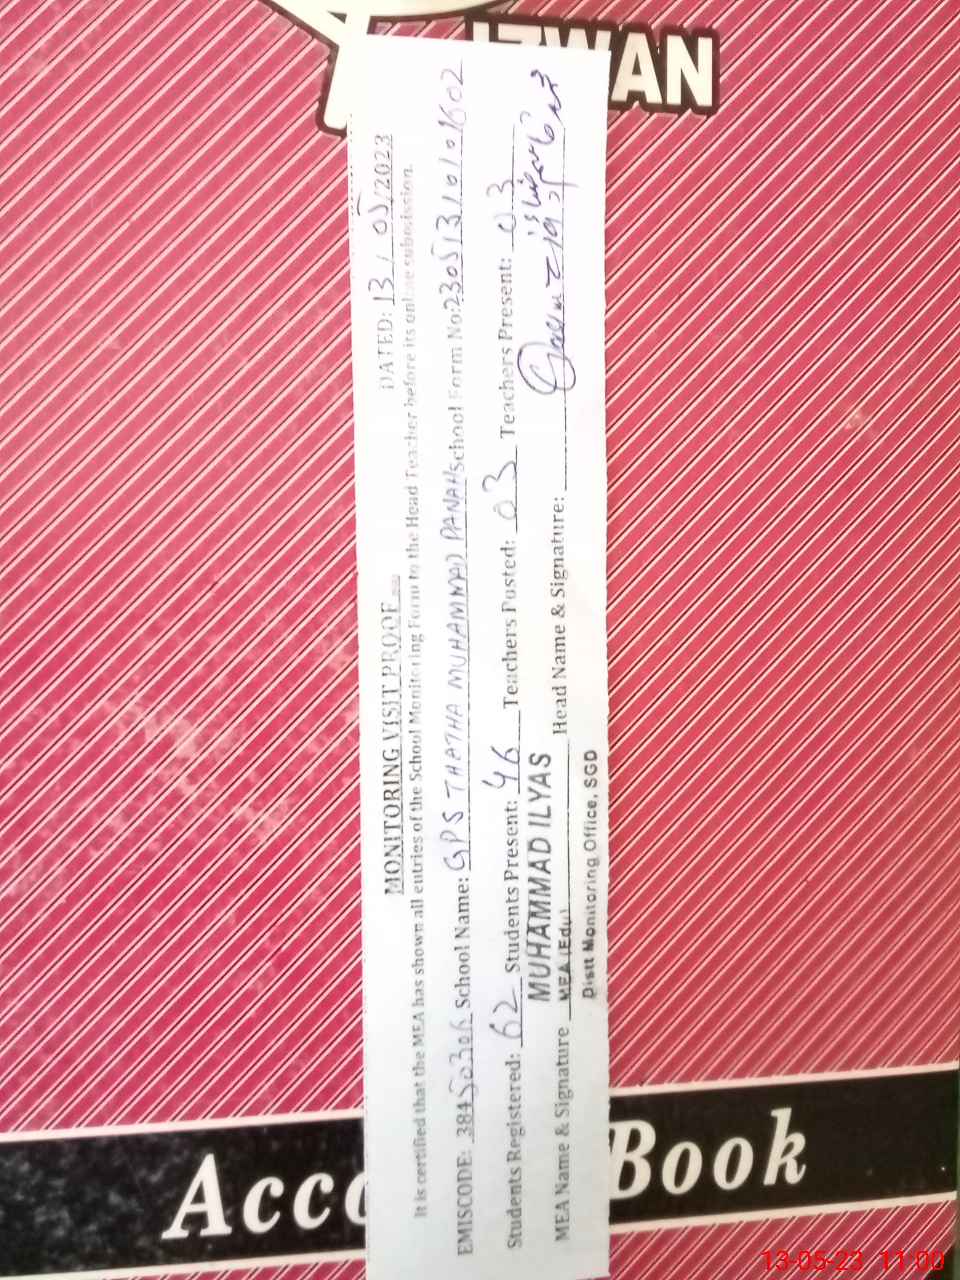 IZWAN
MONITORING VISIT PROOF
DATED: 13/05/2023
It is certified that the MEA has shown all entries of the School Monitoring Form to the Head Teacher before its online submission.
EMISCODE: 38450306 School Name: GPS THATHA MUHAMMAD PANAH School Form No: 23051310101602
Students Registered: 62 Students Present: 46 Teachers Posted: 03 Teachers Present: 03
MUHAMMAD ILYAS
MEA Name & Signature MEA (Edu) Head Name & Signature:
Distt Monitoring Office, SGD
Acco Book
13-05-23 11:00